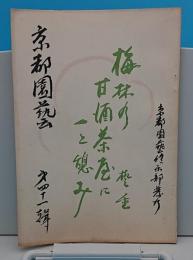 京都園藝
才四十一輯
梅林の
甘酒茶屋に
一と憩み
京都園藝倶楽部発行